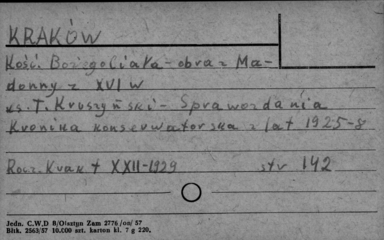 KRAKÓW
Kośc. Bożego Ciała - obraz Ma-
donny z XVI w
ks. T. Kruszyński - Sprawozdania
Kronika konserwatorska z lat 1925-8
Rocz. Krak t XXII-1929 str 142
Jedn. C.W.D B/Olsztyn Zam 2776/oa/57
Bltk. 2563/57 10.000 szt. karton kl. 7 g 220.